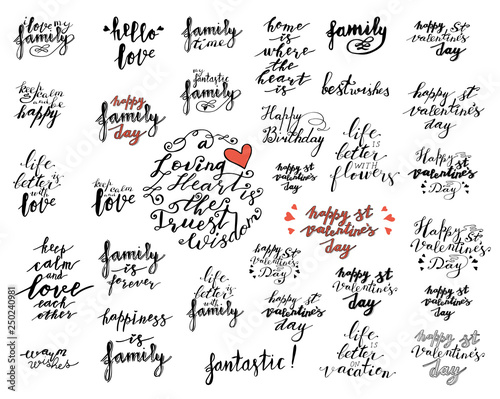 i love my
family
hello
love
family
time
home is
where
the
heart is
family
happy st
valentine's
day
keep calm
and be
happy
happy
family
day
my
fantastic
family
best wishes
happy st
valentine's
day
Happy
Birthday
life
is
better
with
flowers
a
Loving
Heart is
the
Truest
wisdom
life
is
better
with
love
keep calm
and
love
happy st
valentine's
day
Happy St
Valentine's
Day
happy st
valentine's
day
Happy St
Valentine's
Day
keep
calm
and
love
each
other
family
is
forever
Happy St
Valentine's
Day
happy st
valentine's
day
happy st
valentine's
day
life
is
better
with
family
happy st
valentine's
day
happiness
is
family
life
is
better
on
vacation
happy st
valentine's
day
warm
wishes
fantastic!
Adobe Stock | #250240981